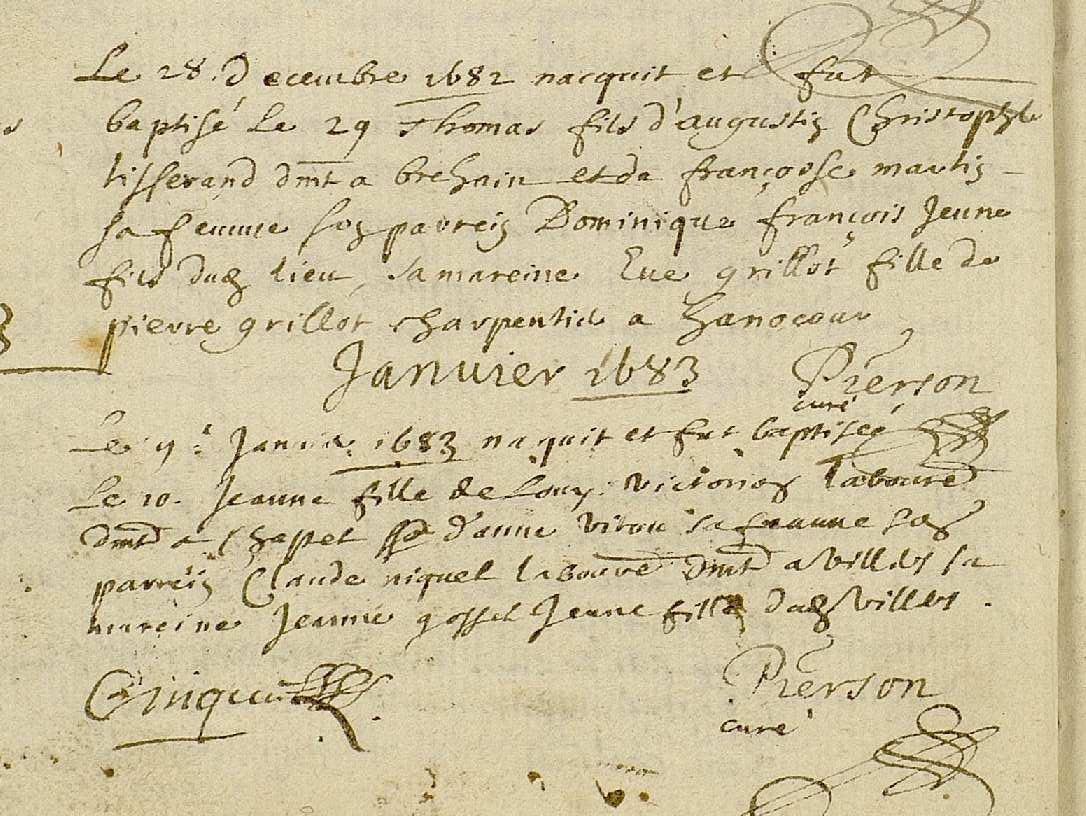 Le 28 Decembre 1682 nacquit et fut
baptisé Le 29 Thomas fils d'augustin Christophle
tisserand dmt a brehain et de françoise martin
sa femme son parrein Dominique françois Jeune
fils dud lieu, sa mareine Eve grillot fille de
pierre grillot charpentie a hanocour
Janvier 1683 Pierson
curé
Le 9e Janvi. 1683 naquit et fut baptisée
Le 10 Jeanne fille de Louys victorion laboure
dmt a Chapel et d'anne viton sa femme son
parrein Claude niquel laboure dmt a villes sa
mareine Jeanne gossel Jeune fille dud villes.
Pierson
curé